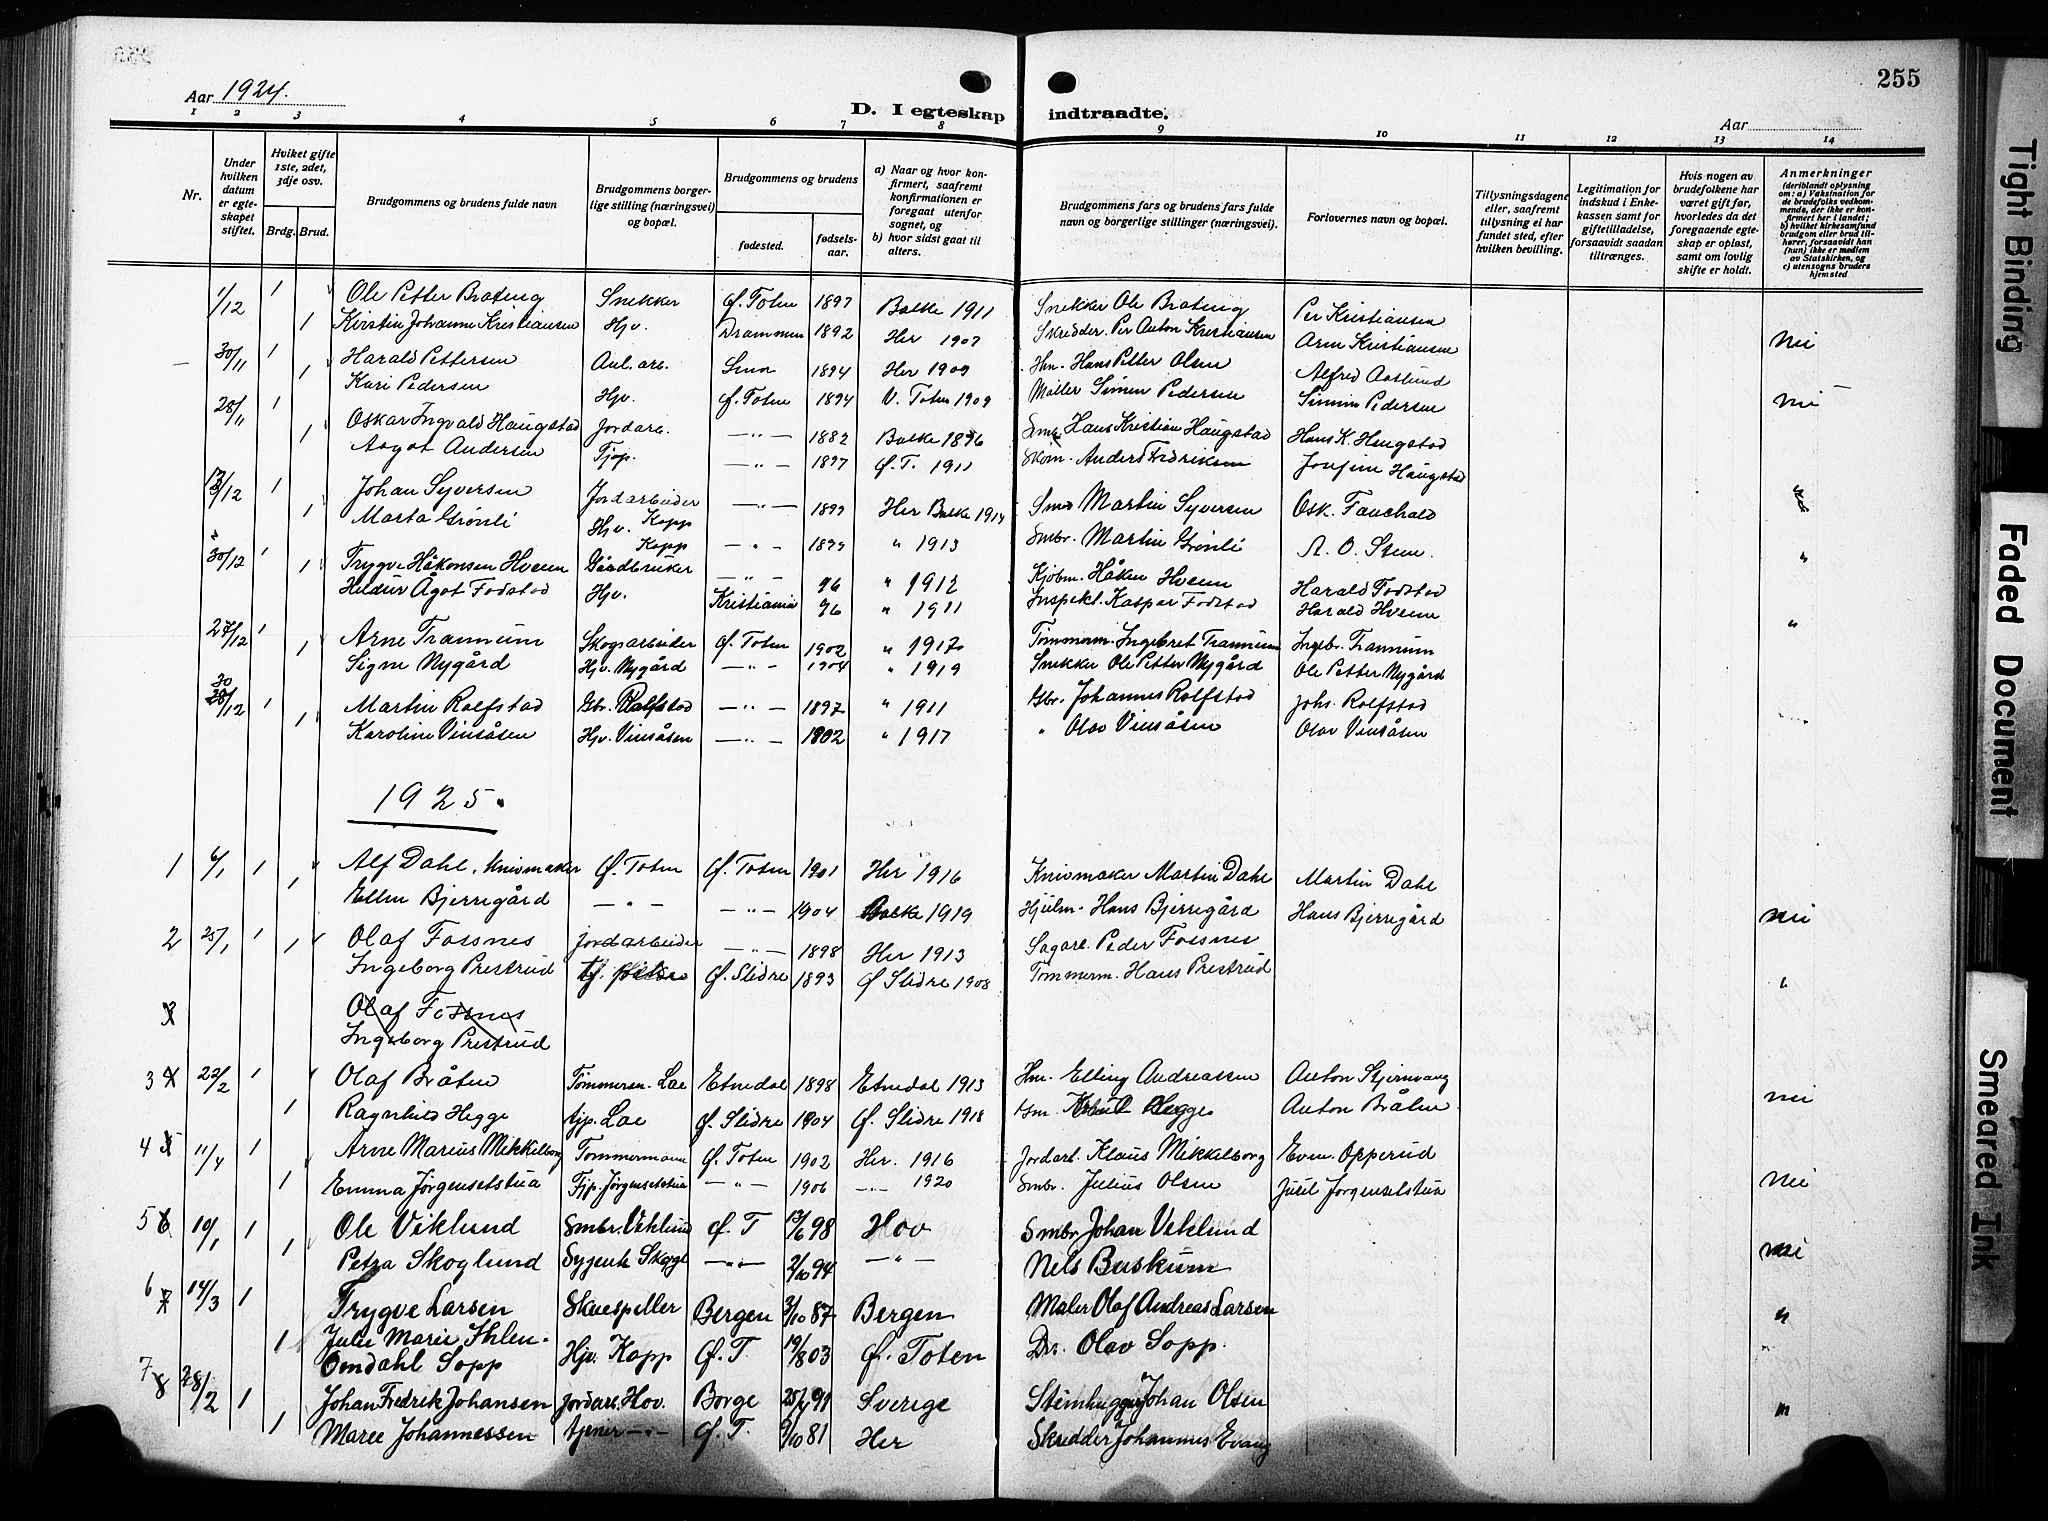 255
Aar 1924.
D. I egteskap indtraadte.
Aar
1 2 3 4 5 6 7 8 9 10 11 12 13 14
Nr.
Under hvilken datum er egteskapet stiftet.
Hviket gifte 1ste, 2det, 3dje osv.
Brdg. Brud.
Brudgommens og brudens fulde navn
Brudgommens borgerlige stilling (næringsvei) og bopæl.
Brudgommens og brudens
fødested. fødselsaar.
a) Naar og hvor konfirmert, saafremt konfirmationen er foregaat utenfor sognet, og
b) hvor sidst gaat til alters.
Brudgommens fars og brudens fars fulde navn og borgerlige stillinger (næringsvei).
Forlovernes navn og bopæl.
Tillysningsdagene eller, saafremt tillysning ei har fundet sted, efter hvilken bevilling.
Legitimation for indskud i Enkekassen samt for giftetilladelse, forsaavidt saadan tiltrænges.
Hvis nogen av brudefolkene har været gift før, hvorledes da det foregaaende egteskap er opløst, samt om lovlig skifte er holdt.
Anmerkninger (deriblandt oplysning om: a) Vaksination for de brudefolks vedkommende, der ikke er konfirmert her i landet; b) hvilket kirkesamfund brudgom eller brud tilhører, forsaavidt han (hun) ikke er medlem av Statskirken, og c) utensogns bruders hjemsted
1/12 1 Ole Petter Brateng Snekker Ø. Toten 1897 Balke 1911 Snekker Ole Brateng Per Kristiansen
1 Kirstin Johanne Kristiansen Hjv. Drammen 1892 Her 1907 Skredder. Per Anton Kristiansen Arne Kristiansen nei
30/11 1 Harald Pettersen 1894 Her 1909 Hans Petter Olsen Alfred Aaslund
1 Kari Pedersen Hjv. Ø. Toten 1894 V. Toten 1909 Møller Simen Pedersen Simen Pedersen nei
28/11 1 Oskar Ingvald Haugstad Jordarb. — " — 1882 Balke Hans Kristian Haugstad Hans K. Haugstad
1 Aagot Andersen Tjep. — " — 1897 Ø. T. 1911 Skom. Anders Fredriksen Haugstad
/12 1 Johan Syversen Jordarbeider — " — 1899 Her Balke 1914 Smed Martin Syversen Osk. Fauchald
1 Marta Grønli Hjv. Kapp — " — 1899 " 1913 Smbr. Martin Grønli A. O. Steen.
30/12 1 Trygve Håkonsen Hveem Gårdbruker Kapp — " — 96 " 1912 Kjøbm. Håken Hveem Harald Fodstad "
1 Hildur Ågot Fodstad Hjv. Kristiania 96 " 1911 Inspekt. Kaspar Fodstad Harald Hveem
27/12 1 Arne Trannum Skogsarbeider Ø. Toten 1902 " 1917 Tømmerm. Ingebret Trannum Ingebr. Trannum "
1 Signe Nygård Hjv. Nygård — " — 1904 " 1919 Snekker Ole Petter Nygård Ole Petter Nygård
30/12 1 Martin Rolfstad Gbr. Rolfstad — " — 1897 " 1911 Gbr. Johannes Rolfstad Johs. Rolfstad
1 Karoline Vinsåsen Hjv. Vinsåsen — " — 1902 " 1917 " Olav Vinsåsen Olav Vinsåsen
1925.
1 6/1 1 Alf Dahl, Knivmaker Ø. Toten Ø. Toten 1901 Her 1916 Knivmaker Martin Dahl Martin Dahl
1 Ellen Bjerregård — " — — " — 1904 Balke 1919 Hjulm. Hans Bjerregård Hans Bjerregård nei
2 25/1 1 Olaf Fossnes Jordarbeider — " — 1898 Her 1913 Sagarb. Peder Fossnes
1 Ingeborg Prestrud Ø. Slidre 1893 Ø Slidre 1908 Tømmerm. Hans Prestrud "
3 Olaf Fossnes
Ingeborg Prestrud
3 22/2 1 Olaf Bråten Tømmerm. Lae Etnedal 1898 Etnedal 1913 Hm. Elling Andreassen Anton Stjernvang
1 Ragnhild Hegge tjp. Lae Ø. Slidre 1904 Ø. Slidre 1918 Gm. Hegge Anton Bråten nei
4 5 11/4 1 Arne Marius Mikkelborg Tømmermann Ø. Toten 1902 Her. 1916 Jordarb. Klaus Mikkelborg Even. Opperud
1 Emma Jørgenselstua Tjp. Jørgenselstua — " — 1906 — " — 1920 Smbr. Julius Olsen Juul Jørgenselstua nei
5 6 10/1 1 Ole Viklund Smbr. Viklund Ø. T 13/6 98 Hov Smbr Johan Viklund
1 Petra Skoglund Sygerske Skogl — " — 2/10 94 — " — Nels Buskum nei
6 7 14/3 1 Trygve Larsen Skuespeller Bergen 3/10 87 Bergen Maler Olaf Andreas Larsen "
1 Julie Marie Ihlen-Omdahl Sopp Hjv. Kapp Ø. T. 19/8 03 Ø. Toten Dr. Olav Sopp.
7 8 28/2 1 Johan Fredrik Johansen Jordarb. Hov Borge 91 Sverige Stenhugger Johan Olsen "
1 Marie Johannessen — " — Ø. T. /10 81 Her Skredder Johannes Evang
Tight Binding
Faded Document
Smeared Ink